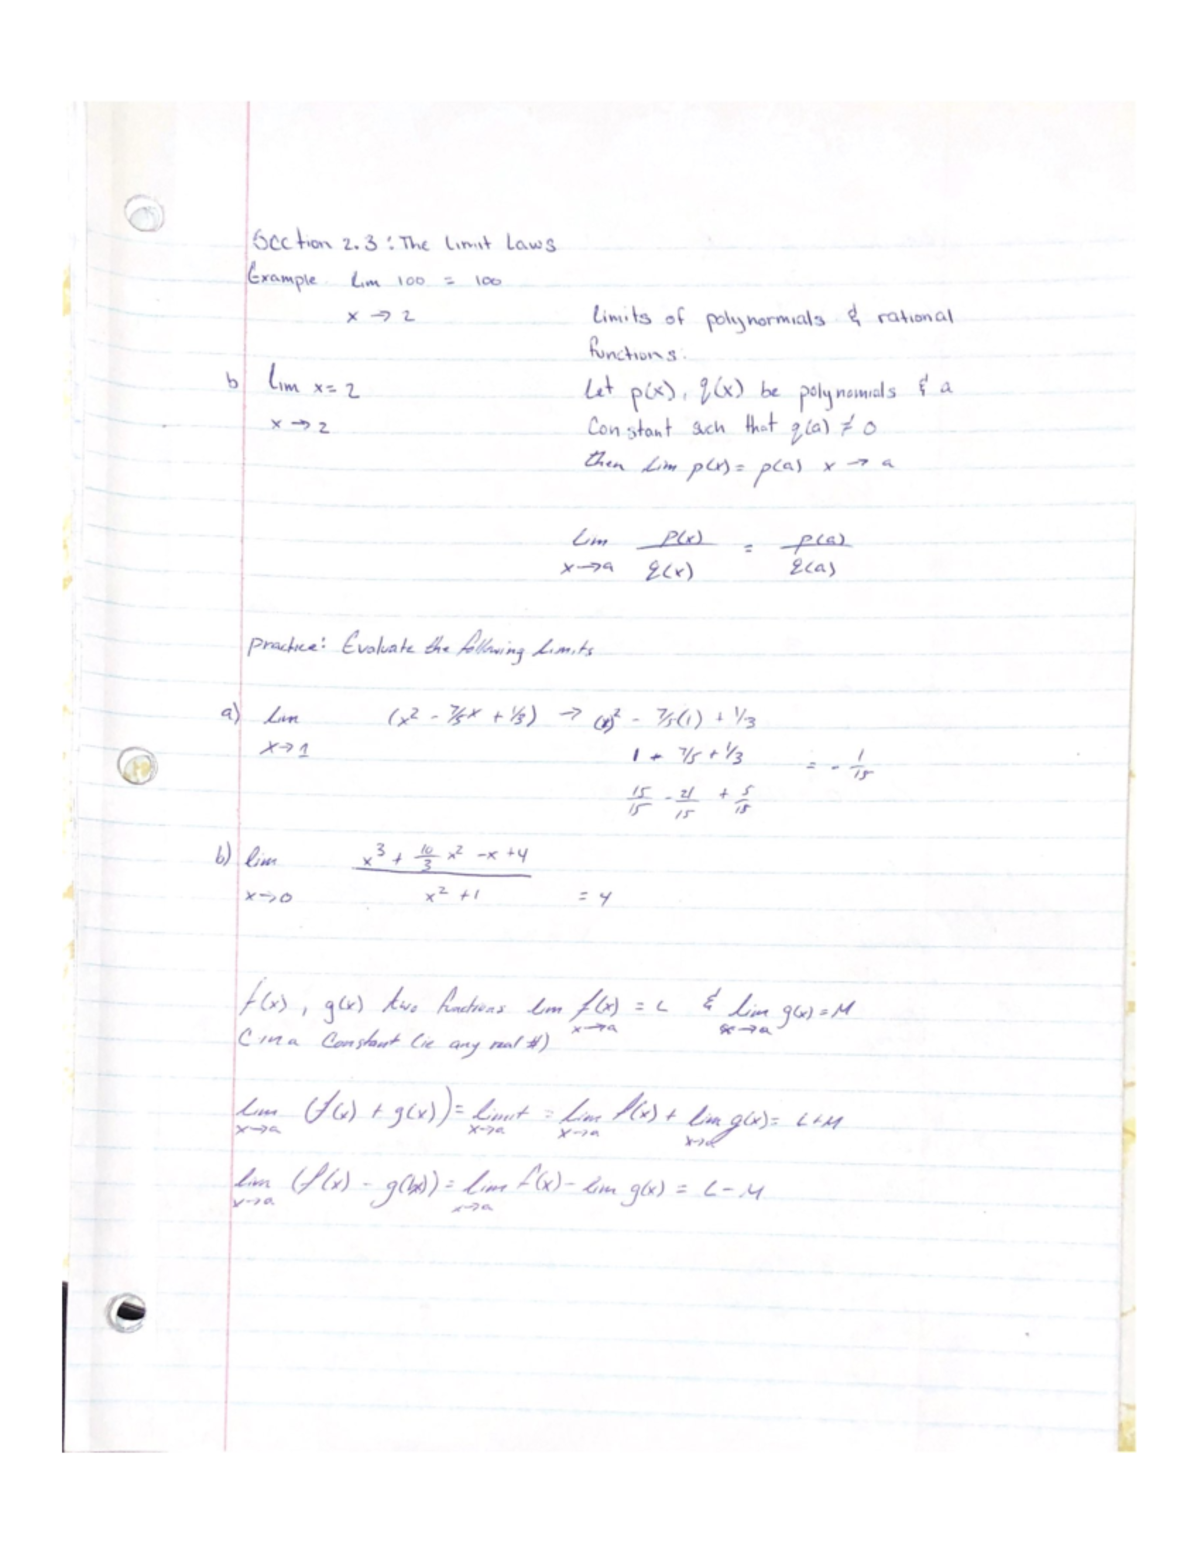 Section 2.3 : The Limit Laws
Example. lim 100 = 100
x → 2
Limits of polynormials & rational
functions.
b lim x = 2
x → 2
Let p(x), q(x) be polynomials & a
Constant such that q(a) ≠ 0
then lim p(x) = p(a) x → a
lim p(x) = p(a)
x→a q(x) q(a)
practice: Evaluate the following limits
a) lim (x² - 7/5x + 1/3) → (1)² - 7/5(1) + 1/3
x→1 1 + 7/5 + 1/3 = - 1/15
15/15 - 21/15 + 5/15
b) lim x³ + 10/3 x² -x +4
x→0 x² +1 = 4
f(x), g(x) two functions lim f(x) = L & lim g(x) = M
x→a x→a
C in a Constant (ie any real #)
lim (f(x) + g(x)) = limit = lim f(x) + lim g(x) = L+M
x→a x→a x→a x→a
lim (f(x) - g(x)) = lim f(x) - lim g(x) = L-M
x→a x→a